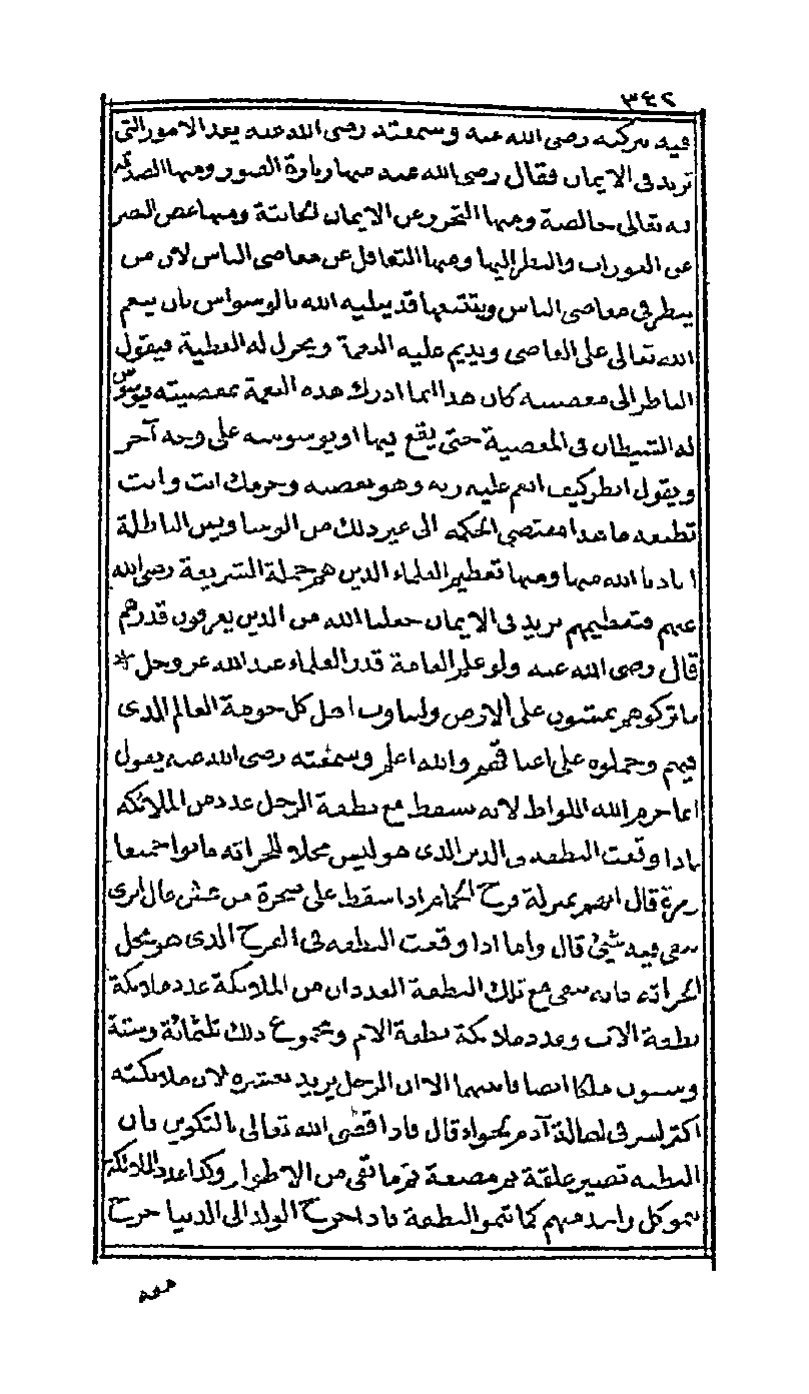 ٣٤٢
فيه بركته رضى الله عنه وسمعته رضى الله عنه يعد الامور التى
تزيد فى الايمان فقال رضى الله عنه منها زيارة القبور ومنها الصدقة
لله تعالى خالصة ومنها التحرز عن الايمان الحانثة ومنها غض البصر
عن العورات والنظر اليها ومنها التغافل عن معاصى الناس لان من
ينظر فى معاصى الناس ويتتبعها قد يبتليه الله بالوسواس بان ينعم
الله تعالى على العاصى ويديم عليه النعمة ويجزل له العطية فيقول
الناظر الى معصيته كان هذا انما ادرك هذه النعمة بمعصيته فيوسوس
له الشيطان فى المعصية حتى يقع فيها او يوسوسه على وجه آخر
ويقول انظر كيف انعم عليه ربه وهو يعصيه وحرمك انت وانت
تطيعه ما هذا مقتضى الحكمة الى غير ذلك من الوساويس الباطلة
اعاذنا الله منها ومنها تعظيم العلماء الذين هم حملة الشريعة رضى الله
عنهم فتعظيمهم يزيد فى الايمان جعلنا الله من الذين يعرفون قدرهم
قال رضى الله عنه ولو علم العامة قدر العلماء عند الله عز وجل *
ما تركوهم يمشون على الارض ولتناوب اهل كل حومة العالم الذى
فيهم وحملوه على اعناقهم والله اعلم وسمعته رضى الله عنه يقول
انما حرم الله اللواط لانه يسقط مع نطفة الرجل عدد من الملائكة
فاذا وقعت النطفة فى الدبر الذى هو ليس محلا للحراثة ماتوا جميعا
قال انهم بمنزلة فرخ الحمام اذا سقط على صخرة من عش عال اترى
يبقى فيه شئ قال واما اذا وقعت النطفة فى الفرج الذى هو محل
الحراثة فانه يبقى مع تلك النطفة العددان من الملائكة عدد ملائكة
نطفة الاب وعدد ملائكة نطفة الام ومجموع ذلك ثلثمائة وستة
وستون ملكا انصافا بينهما الا ان الرجل يزيد بعشرة لان ملائكته
اكثر لسر فى اصالة آدم لحواء قال فاذا قضى الله تعالى بالتكوين فان
النطفة تصير علقة ثم مضغة ثم ما بقى من الاطوار وكذا عدد الملائكة
ينمو كل واحد منهم كما تنمو النطفة فاذا خرج الولد الى الدنيا خرج
معه